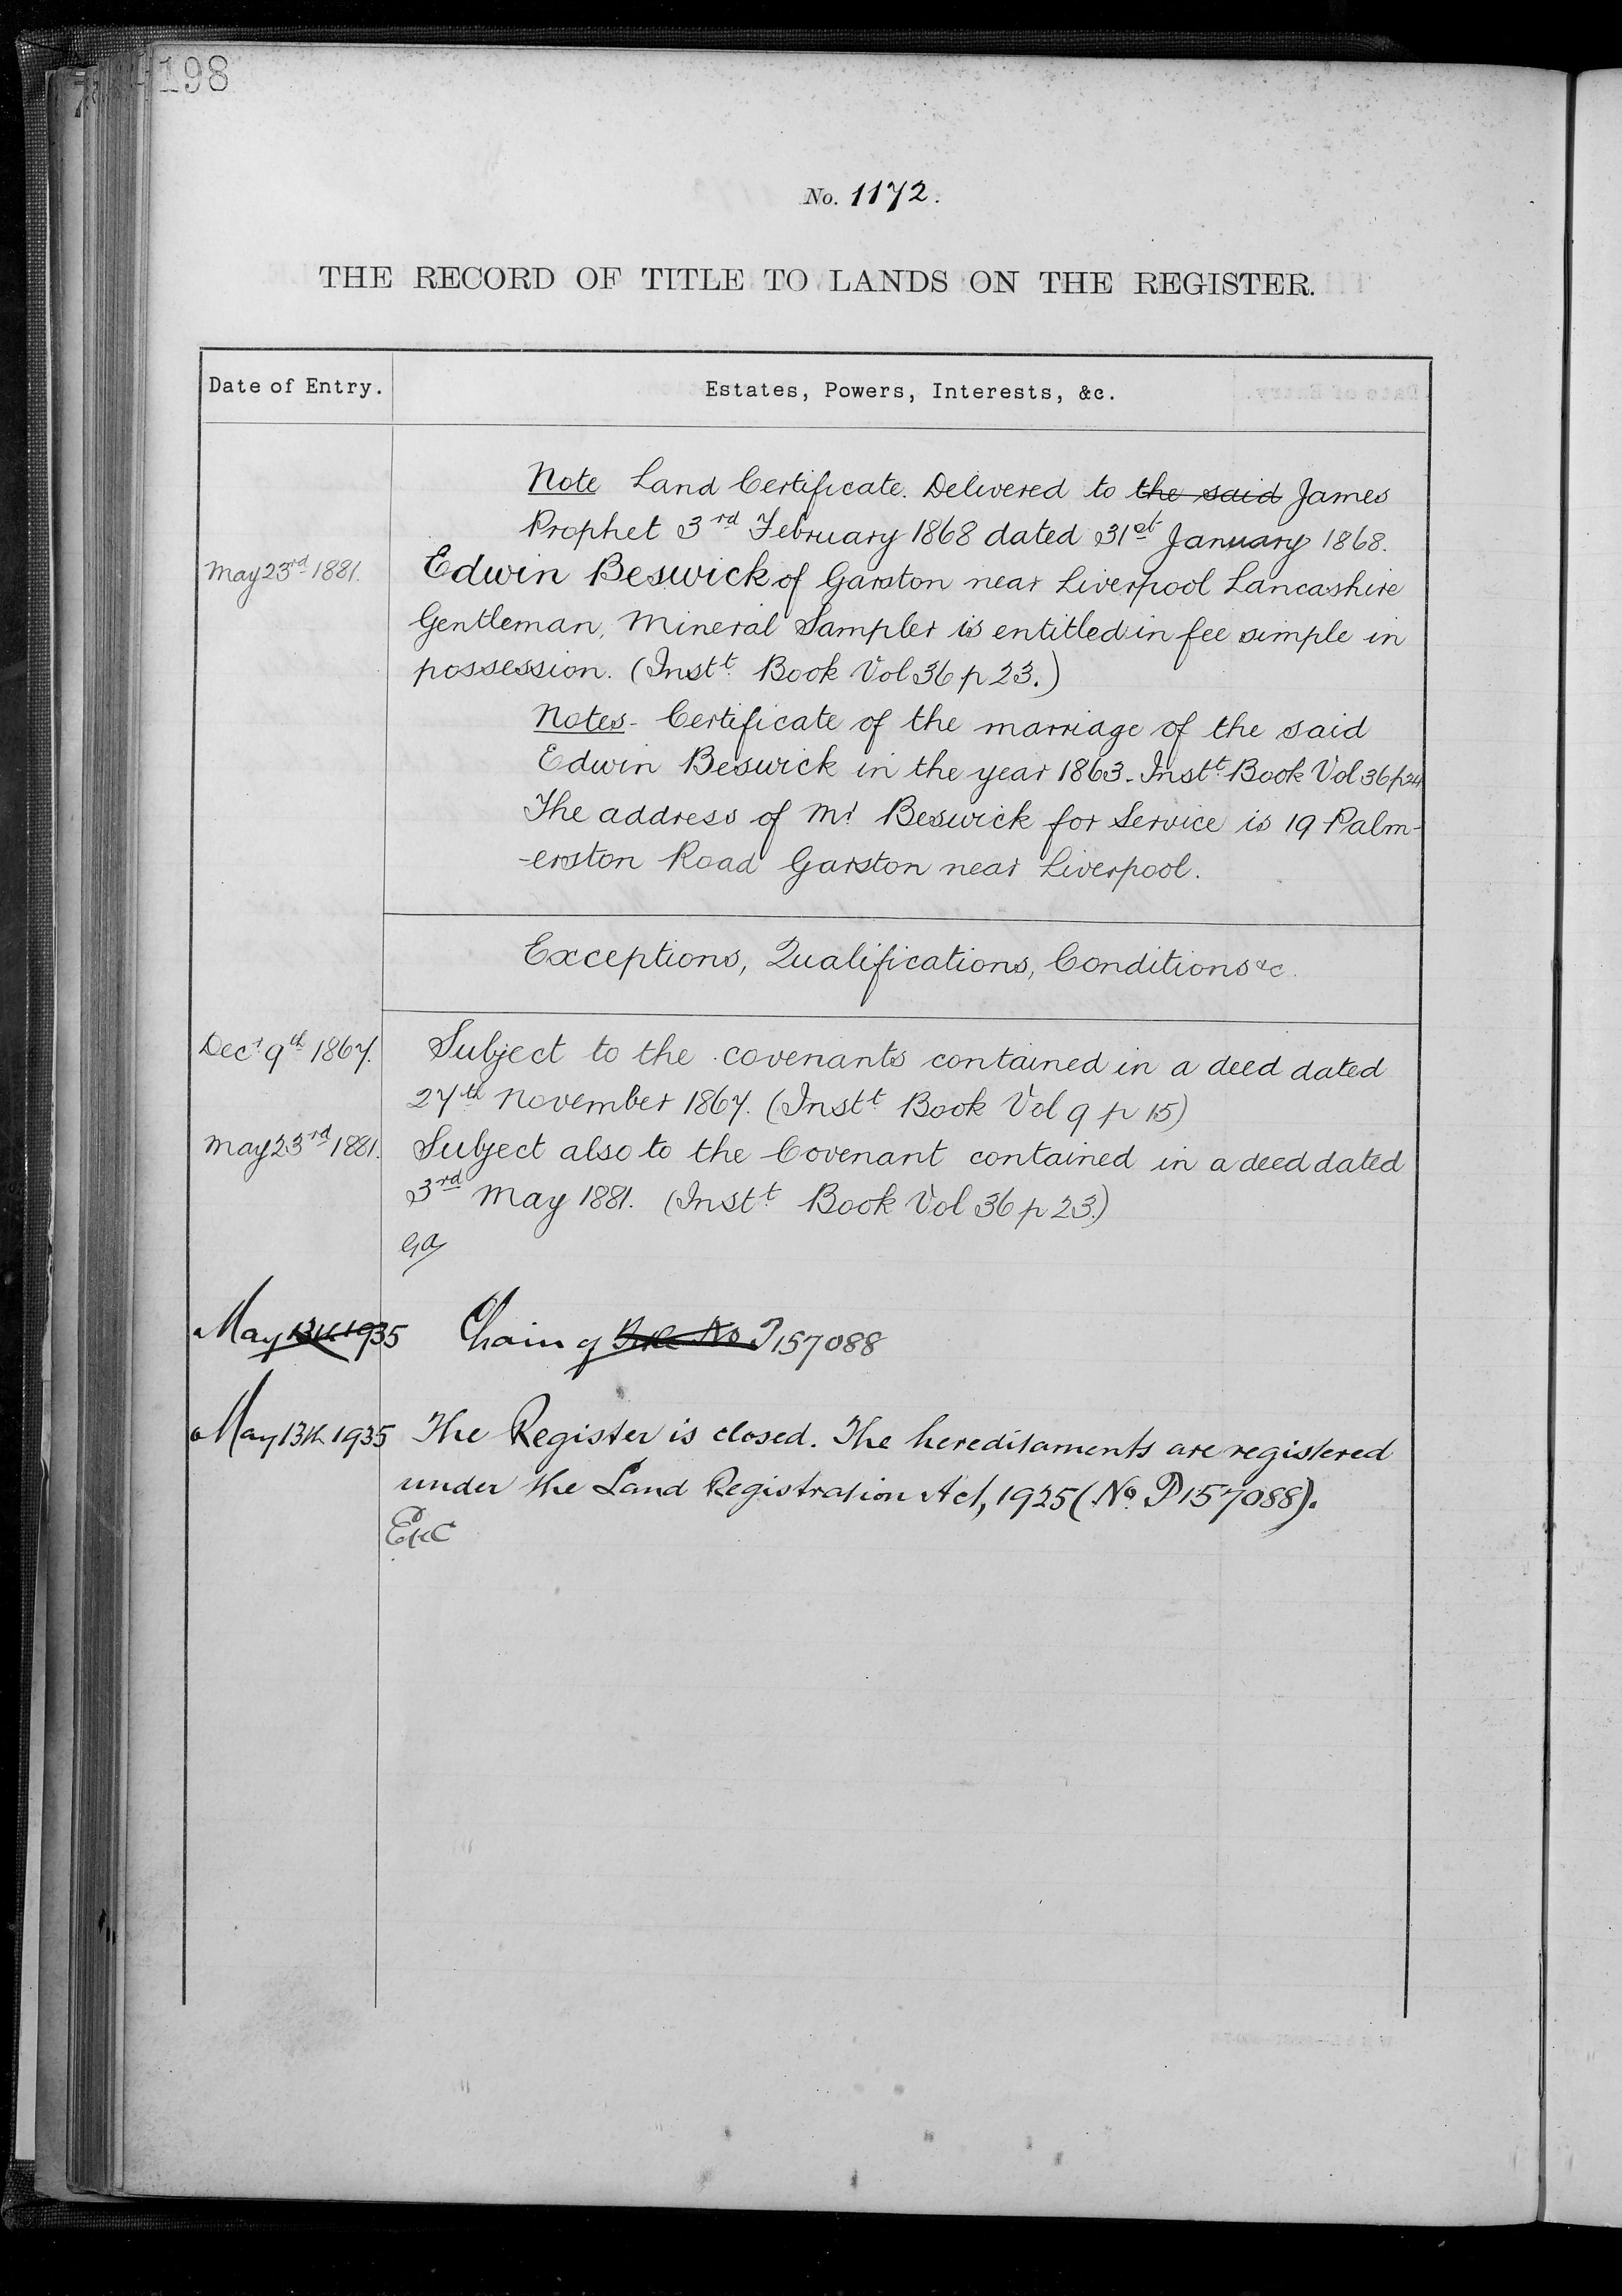 198
No. 1172.
THE RECORD OF TITLE TO LANDS ON THE REGISTER.
Date of Entry.
Estates, Powers, Interests, &c.
Note Land Certificate. Delivered to the said James
Prophet 3rd February 1868 dated 31st January 1868.
May 23rd 1881. Edwin Beswick of Garston near Liverpool Lancashire
Gentleman, Mineral Sampler is entitled in fee simple in
possession. (Instt Book Vol 36 p 23.)
Notes - Certificate of the marriage of the said
Edwin Beswick in the year 1863. Instt Book Vol 36 p 24
The address of Mr Beswick for Service is 19 Palm-
-erston Road Garston near Liverpool.
Exceptions, Qualifications, Conditions &c.
Decr 9th 1867. Subject to the covenants contained in a deed dated
27th November 1867. (Instt Book Vol 9 p 15)
May 23rd 1881. Subject also to the Covenant contained in a deed dated
3rd May 1881. (Instt Book Vol 36 p 23.)
May 13th 1935 No P157088
May 13th 1935 The Register is closed. The hereditaments are registered
under the Land Registration Act, 1925 (No. P157088).